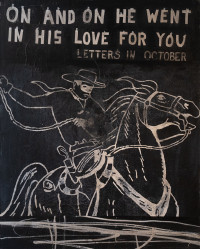 ON AND ON HE WENT
IN HIS LOVE FOR YOU
LETTERS IN OCTOBER